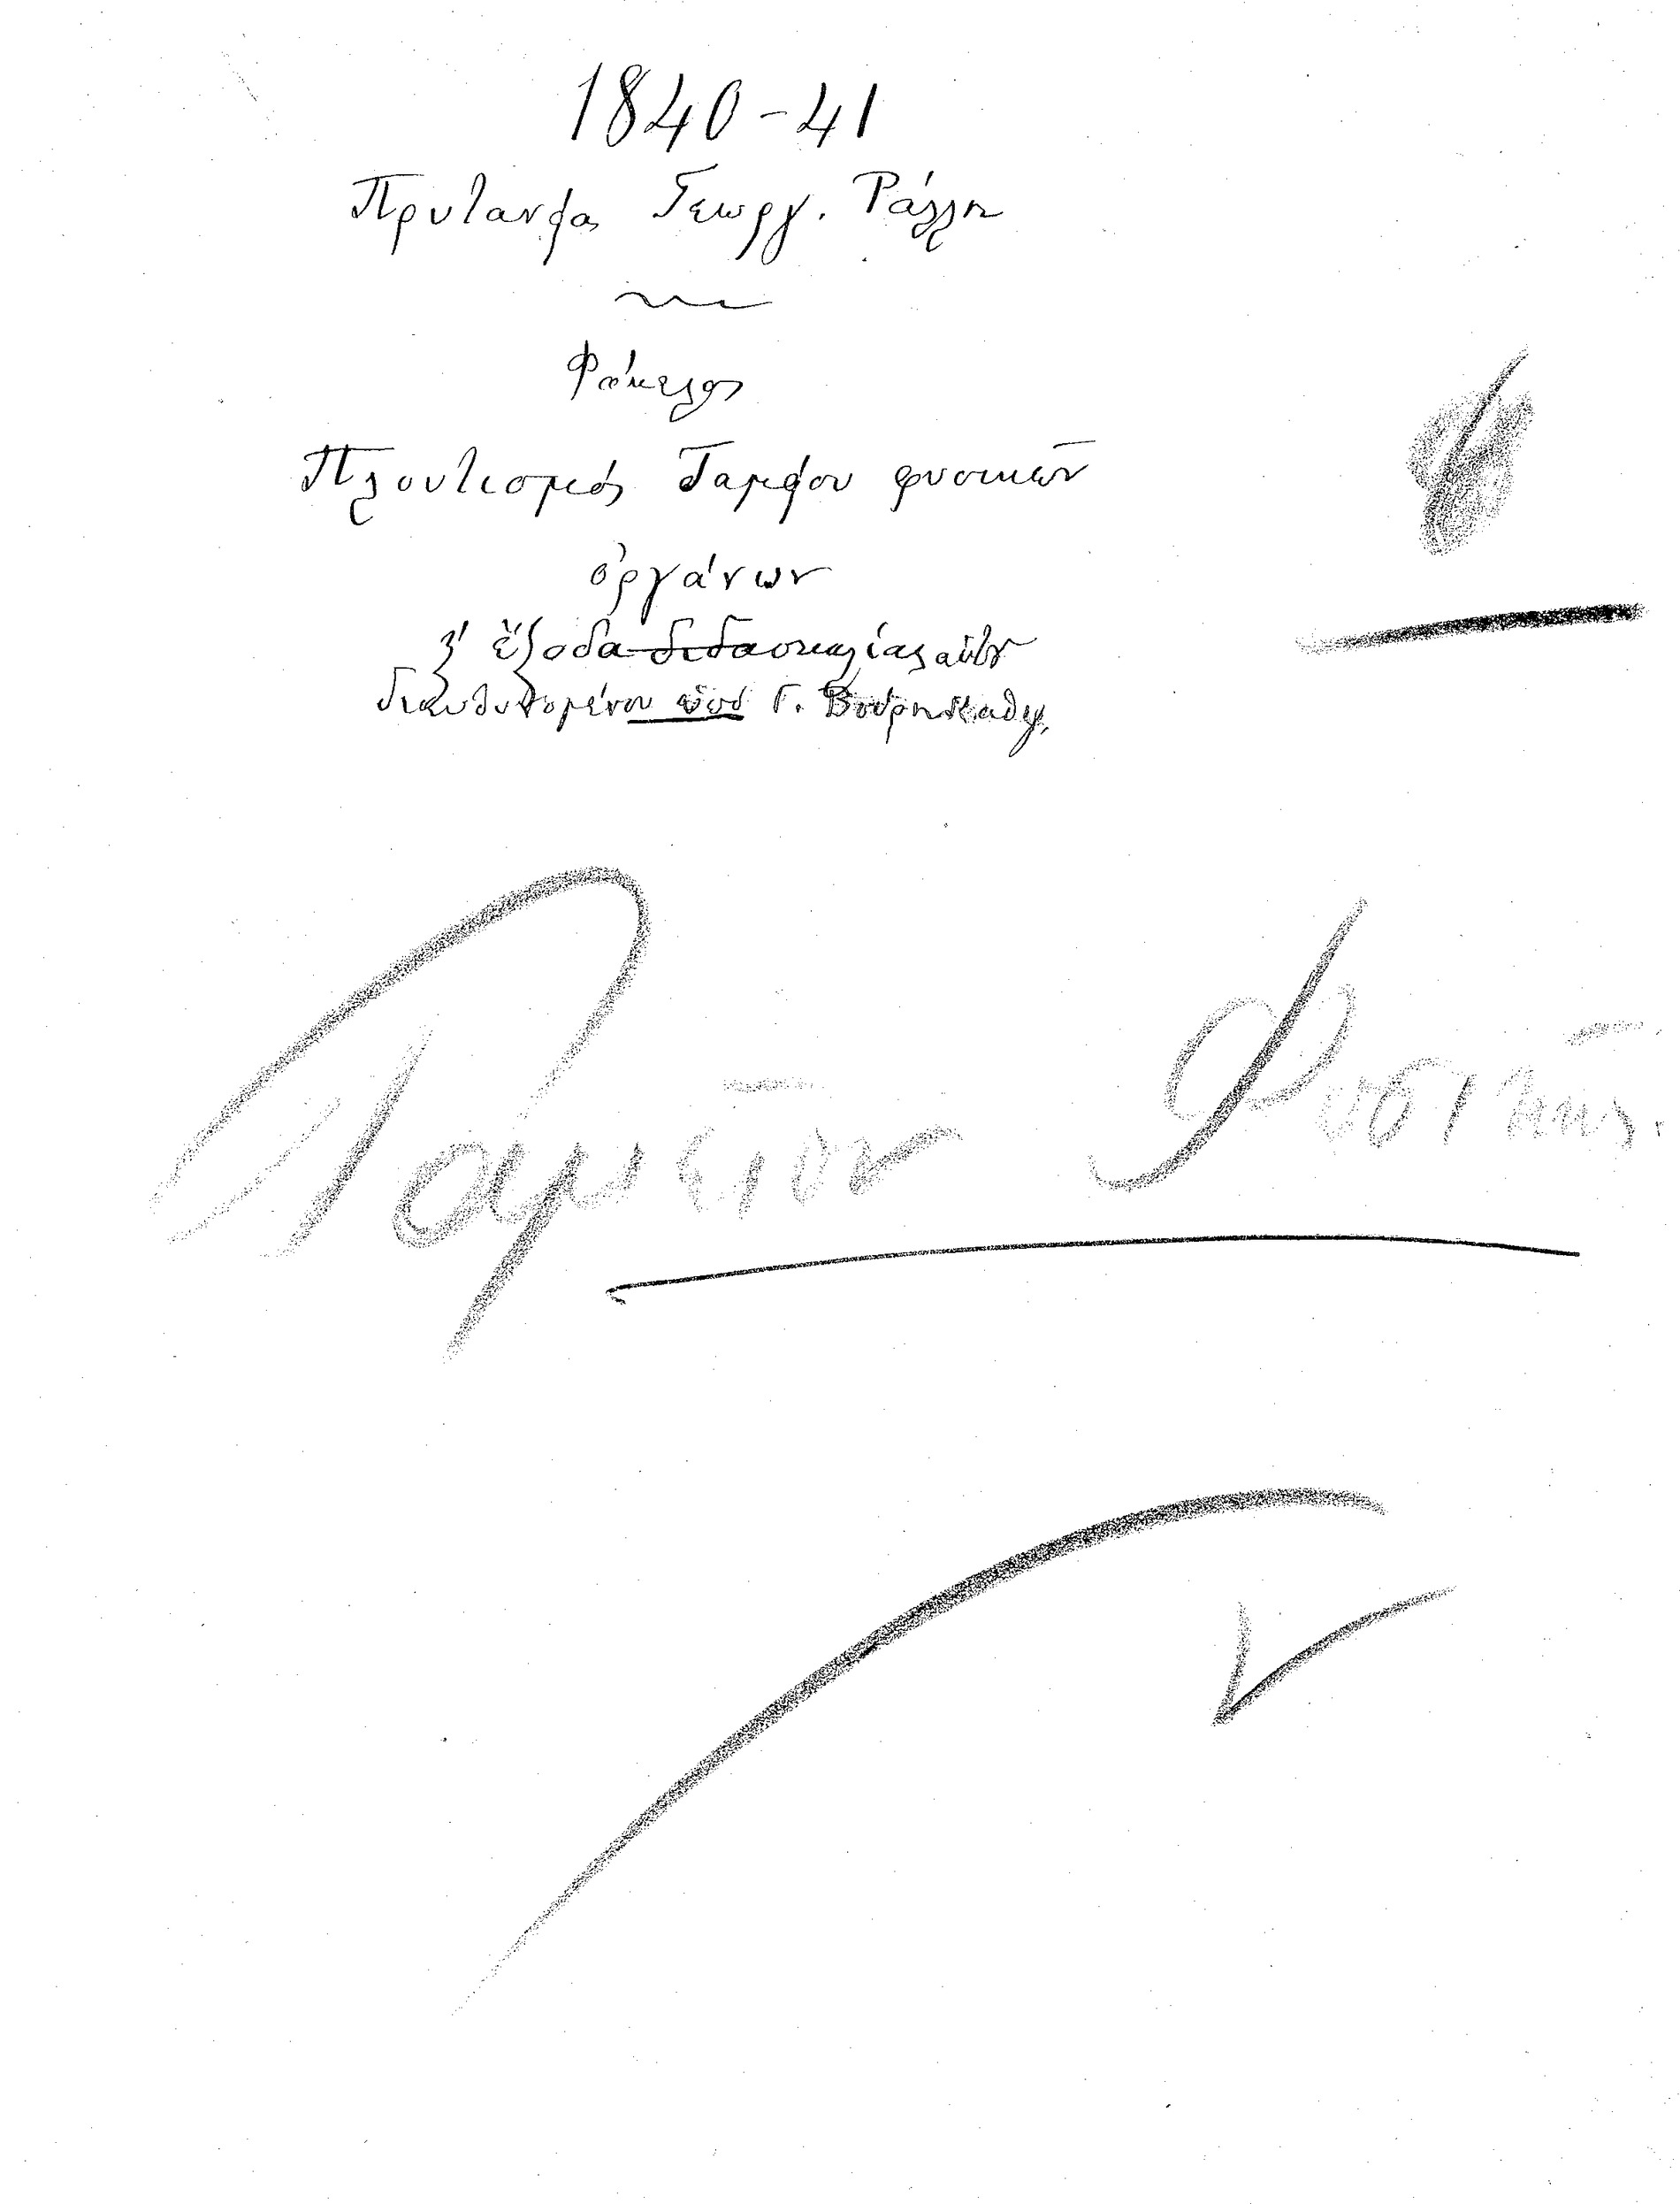 1840-41
Πρυτανεία Γεωργ. Ράλλη
Φάκελος
Πλουτισμός Ταμείου φυσικῶν
ὀργάνων
ἔξοδα διδασκαλίας αὐτῶν
διευθυνομένου ὑπό Γ. Βούρη καθηγ.
Ταμεῖον Φυσικῆς.